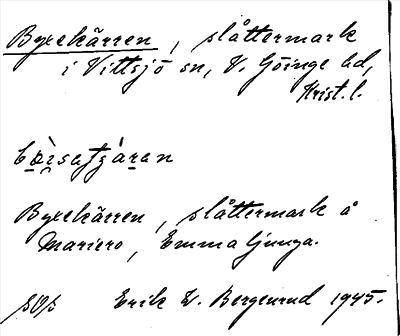 Byxekärren, slåttermark
i Vittsjö sn, V. Göinge hd,
Krist. l.
Byxekärren, slåttermark å
Mariero, Emmaljunga.
Erik W. Bergenrud 1945.